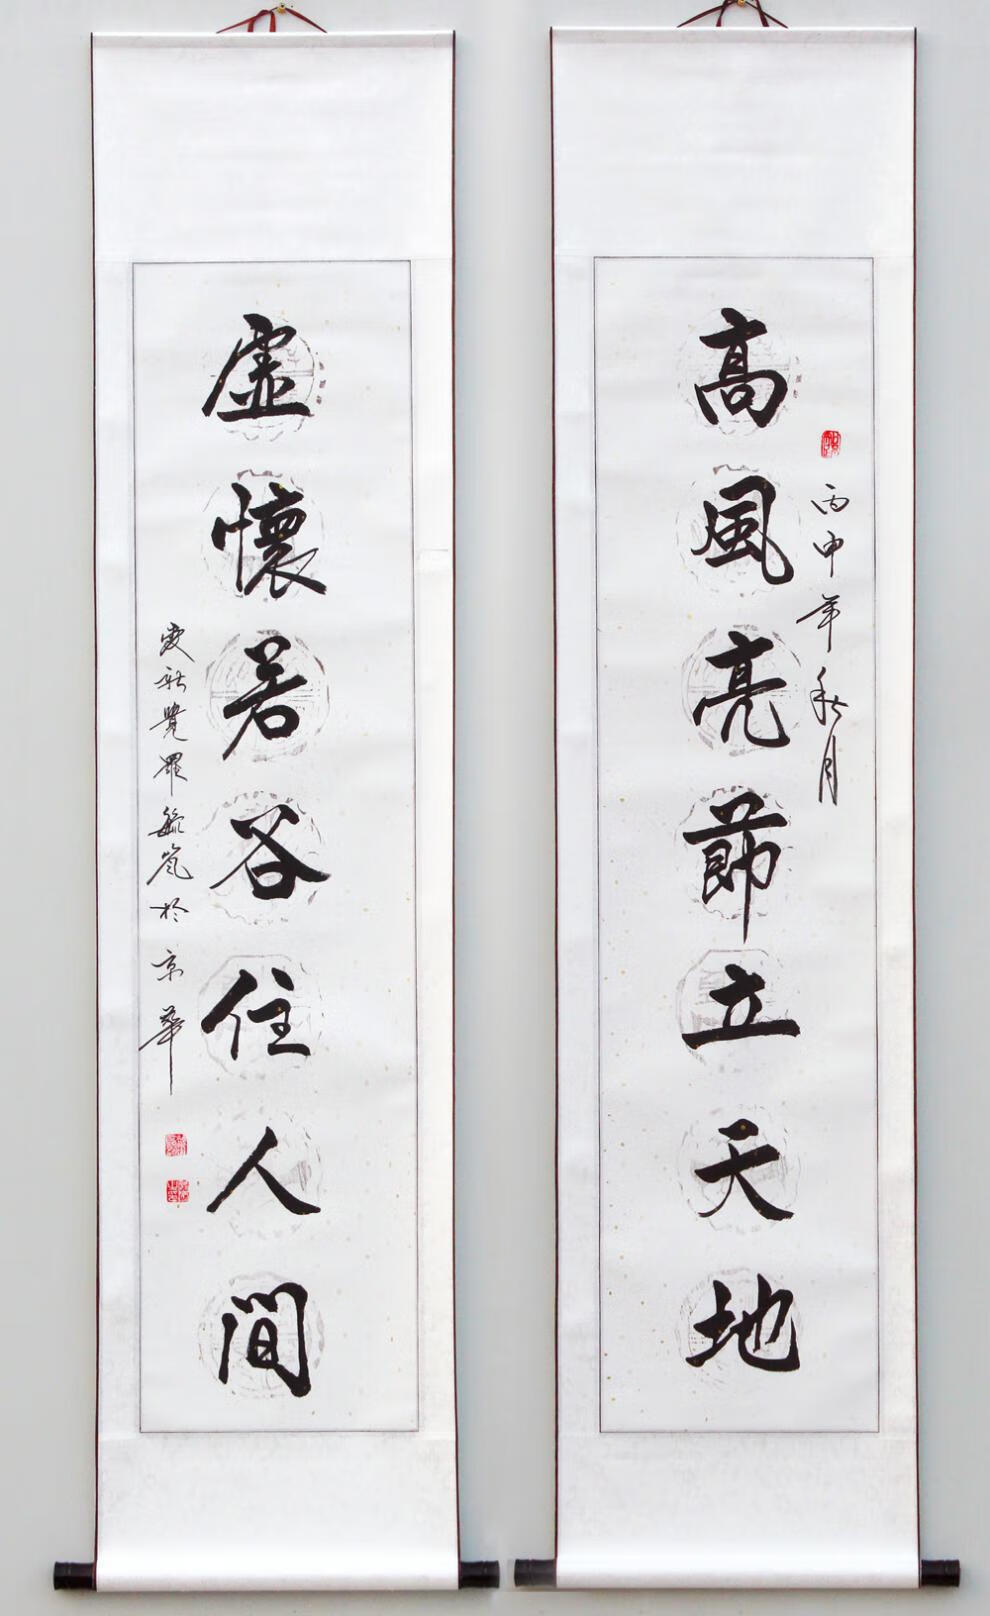 高風亮節立天地
丙申年秋月
虛懷若谷住人間
愛新覺羅毓嵐於京華